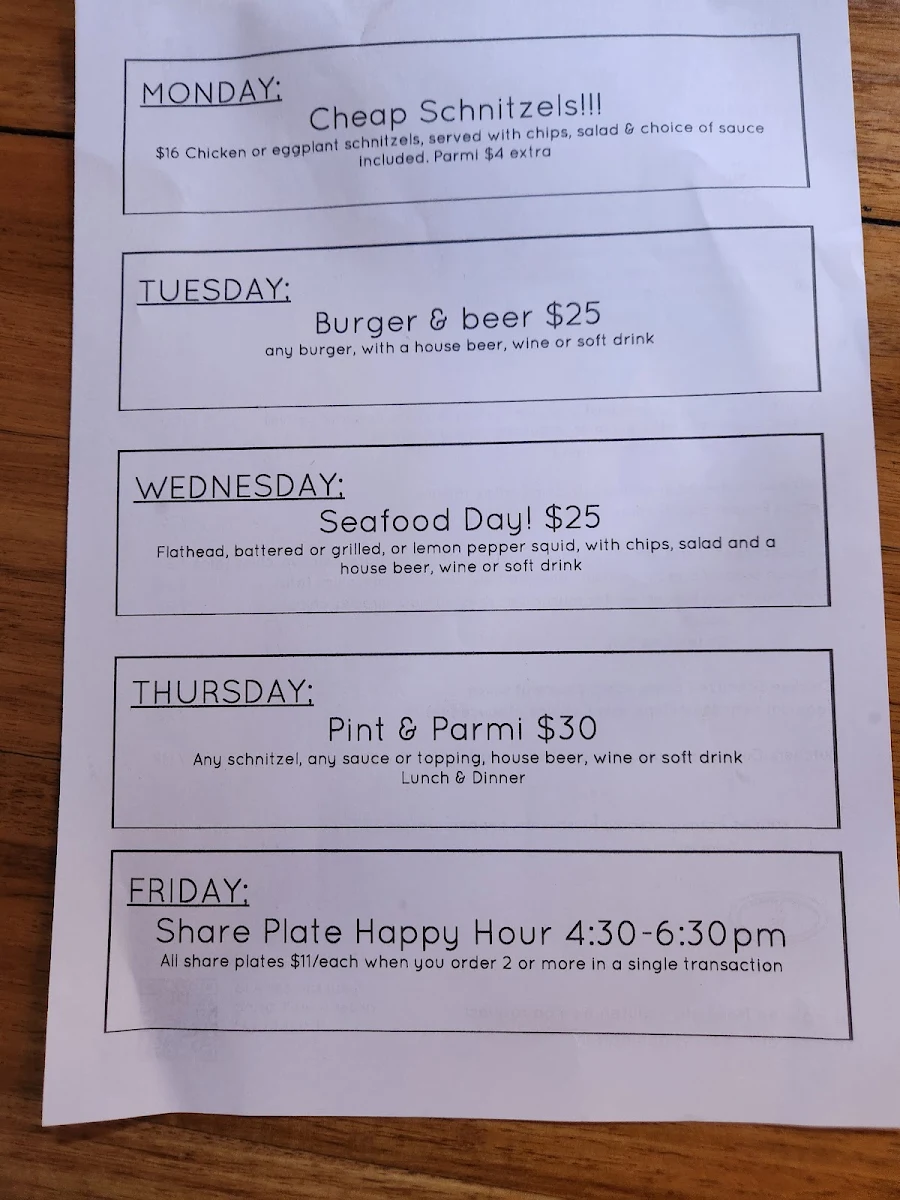 MONDAY;
Cheap Schnitzels!!!
$16 Chicken or eggplant schnitzels, served with chips, salad & choice of sauce
included. Parmi $4 extra
TUESDAY;
Burger & beer $25
any burger, with a house beer, wine or soft drink
WEDNESDAY;
Seafood Day! $25
Flathead, battered or grilled, or lemon pepper squid, with chips, salad and a
house beer, wine or soft drink
THURSDAY;
Pint & Parmi $30
Any schnitzel, any sauce or topping, house beer, wine or soft drink
Lunch & Dinner
FRIDAY;
Share Plate Happy Hour 4:30-6:30pm
All share plates $11/each when you order 2 or more in a single transaction